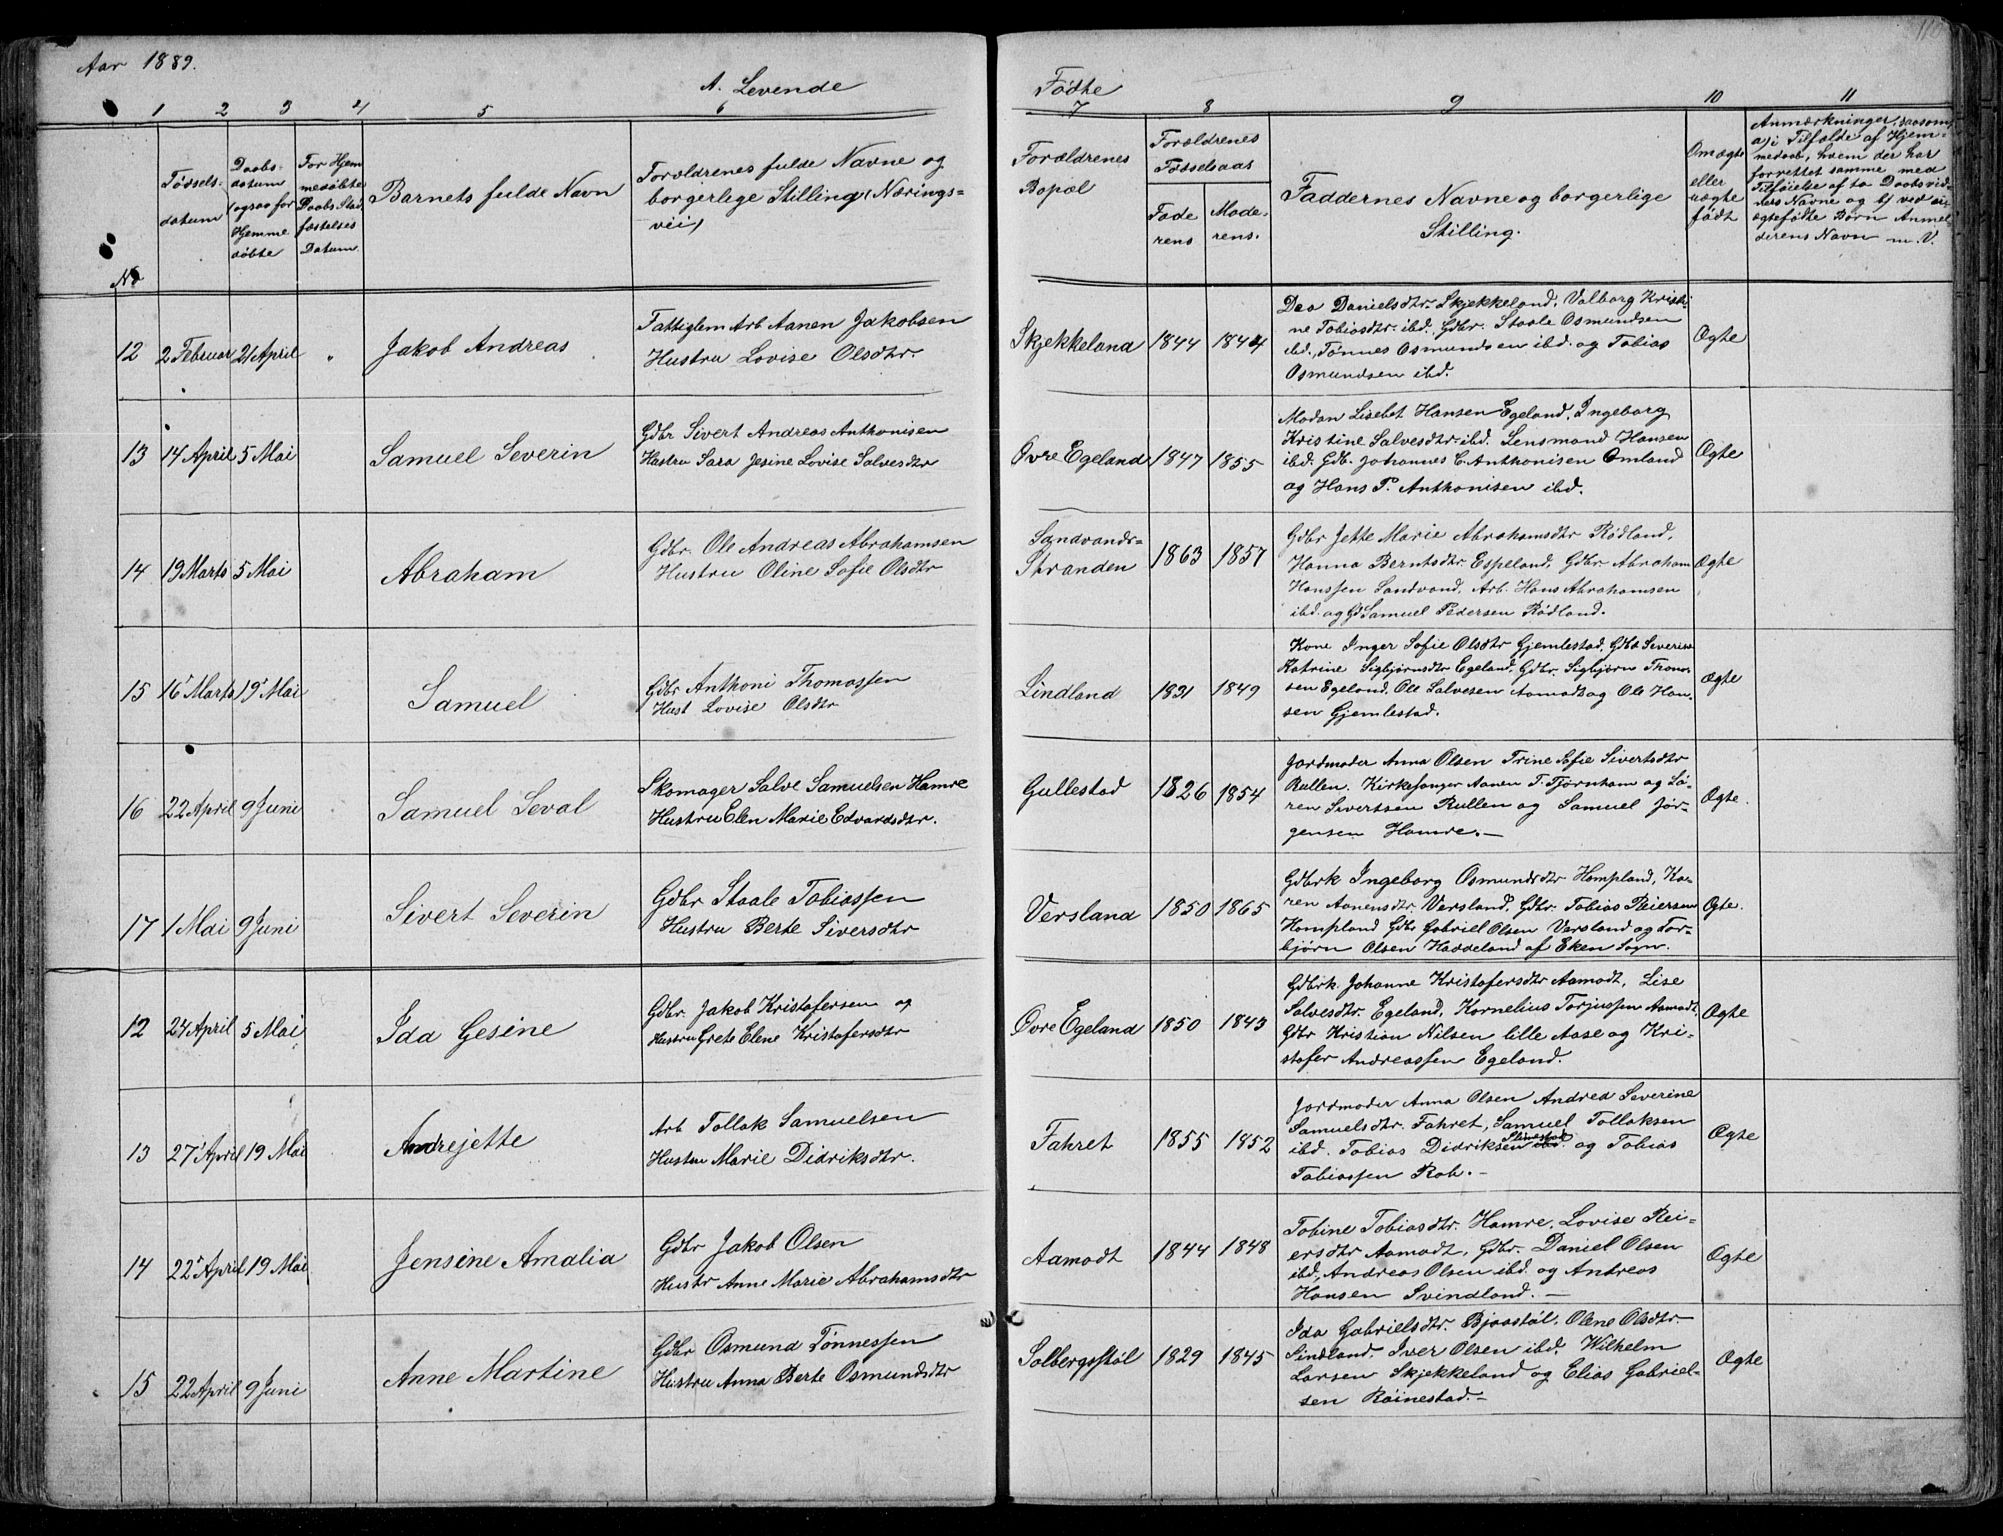 Aar 1889.
110
A. Levende
Födte
1 2 3 4 5 6
7 8 9 10 11
No
Födsels-
datum
Daabs-
datum
(ogsaa for
Hjemme
döbte
For Hjem
medöbte
Daabs Stad
fæstelses
Datum.
Barnets fulde Navn
Forældrenes fulde Navne og
borgerlige Stilling (Nærings-
vei)
Forældrenes
Bopæl
Forældrenes
Födselsaar
Fade
rens
Mode-
rens.
Faddernes Navne og borgerlige
Stilling.
Om ægte
eller
uægte
födt
Anmærkninger, saasom
a) i Tilfælde af Hjem-
medaab, hvem der har
forrettet samme med
Tilföielse af to Daabsvid-
ners Navne og b) ved u-
ægtefödte Börn Anmel
derens Navn m. V.
12 2 Februar 21 April " Jakob Andreas
Fattiglem Arb Aanen Jakobsen
Hustru Lovise Olsdtr
Skjekkeland 1844 1844
Dea Danielsdtr. Skjekkeland, Valborg Kristi-
ne Tobiasdtr. ibd. Gdbr. Staale Osmundsen
ibd., Tönnes Osmundsen ibd. og Tobias
Osmundsen ibd.
Ægte
13 14 April 5 Mai Samuel Severin
Gdbr Sivert Andreas Anthonisen
Hustru Sara Jesine Lovise Salvesdtr
Övre Egeland 1847 1855
Madam Lisebet Hansen Egeland, Ingeborg
Kristine Salvesdtr. ibd. Lensmand Hansen
ibd. Gdb. Johannes C. Anthonisen Omland
og Hans P. Anthonisen ibd.
Ægte
14 19 Marts 5 Mai Abraham
Gdbr. Ole Andreas Abrahamsen
Hustru Oline Sofie Olsdtr
Sandvands-
Stranden 1863 1857
Gdbr Jette Marie Abrahamsdtr Rödland,
Hanna Berntsdtr. Espeland, Gdbr Abraham
Hanssen Sandvand, Arb. Hans Abrahamsen
ibd. og Gd Samuel Pedersen Rödland.
Ægte
15 16 Marts 19 Mai Samuel
Gdbr Anthoni Thomassen
Hust Lovise Olsdtr
Lindland 1821 1849
Kone Inger Sofie Olsdtr Gjemlestad, Gdbd Severine
Katrine Sigbjörnsdtr Egeland, Gdbr. Sigbjörn Thomas-
sen Egeland, Ole Salvesen Aamodt og Ole Han-
sen Gjemlestad.
Ægte
16 22 April 9 Juni Samuel Seval
Skomager Salve Samuelsen Hamre
Hustru Elen Marie Edvardsdtr.
Gullestad 1826 1854
Jordmoder Anna Olsen Trine Sofie Sivertsdtr
Rullen, Kirkesanger Aanen T. Tjörnham og Sö-
ren Sivertsen Rullen og Samuel Jör-
gensen Hamre.—
Ægte.
17 1 Mai 9 Juni Sivert Severin
Gdbr Staale Tobiassen
Hustru Berte Siversdtr
Versland 1850 1865
Gdbrk Ingeborg Osmundsdtr Hompland, Ka-
ren Aanensdtr. Versland, Gdbr. Tobias Reiersen
Hompland Gdbr Gabriel Olsen Versland og Tor-
björn Olsen Haddeland af Eken Sogn.
Ægte.
12 24 April 5 Mai Ida Gesine
Gdbr. Jakob Kristofersen og
Hustru Grete Elene Kristofersdtr
Övre Egeland 1850 1843
Gdbrk. Johanne Kristofersdtr Aamodt, Lise
Salvesdtr. Egeland, Kornelius Torjussen Aamodt,
Gdbr Kristian Nilsen lille Aase og Kri-
stofer Andreassen Egeland.
Ægte
13 27 April 19 Mai Andrejette
Arb Tollak Samuelsen
Hustru Marie Didriksdtr.
Fahret 1855 1852
Jordmoder Anna Olsen Andrea Severine
Samuelsdtr. Fahret, Samuel Tollaksen
ibd. Tobias Didriksen ibd. og Tobias
Tobiassen Rob.—
Ægte
14 22 April 19 Mai Jensine Amalia
Gdbr Jakob Olsen
Hustr Anne Marie Abrahamsdtr
Aamodt 1844 1848
Tobine Tobiasdtr. Hamre, Lovise Rei-
ersdtr Aamodt, Gdbr. Daniel Olsen
ibd, Andreas Olsen ibd. og Antreas
Hansen Svindland.—
Ægte
15 22 April 9 Juni Anne Martine
Gdbr Osmund Tönnessen
Hustru Anna Berte Osmundsdtr
Solbergsstöl 1829 1845
Ida Gabrielsdtr. Bjaastöl, Olene Olsdtr
Sindland, Iver Olsen ibd. Wilhelm
Larsen Skjekkeland og Elias Gabriel-
sen Röinestad.—
Ægte